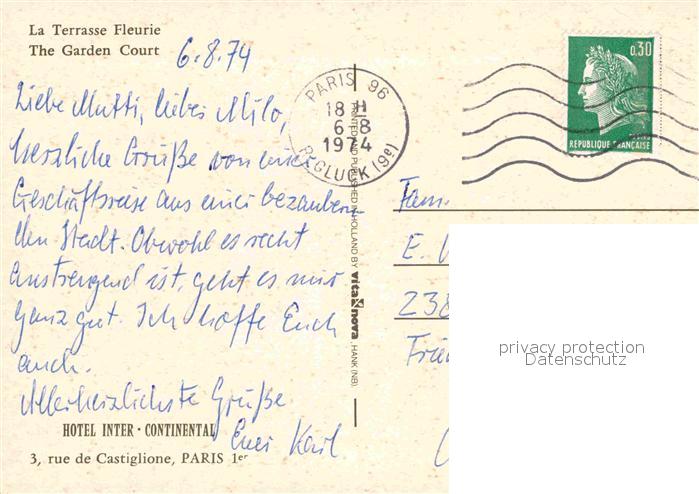 La Terrasse Fleurie
The Garden Court
6.8.74
Liebe Mutti, lieber Milo,
herzliche Grüße von einer
Geschäftsreise aus einer bezaubern-
den Stadt. Obwohl es recht
anstrengend ist, geht es mir
ganz gut. Ich hoffe Euch
auch.
Allerherzlichste Grüße
Euer Karl
HOTEL INTER · CONTINENTAL
3, rue de Castiglione, PARIS 1er
PRINTED AND PUBLISHED IN HOLLAND BY vita nova, HANK (NB).
PARIS 96
18 H
6-8
1974
R. GLUCK (9e)
0,30
REPUBLIQUE FRANÇAISE
Fam.
E.
238
privacy protection
Datenschutz